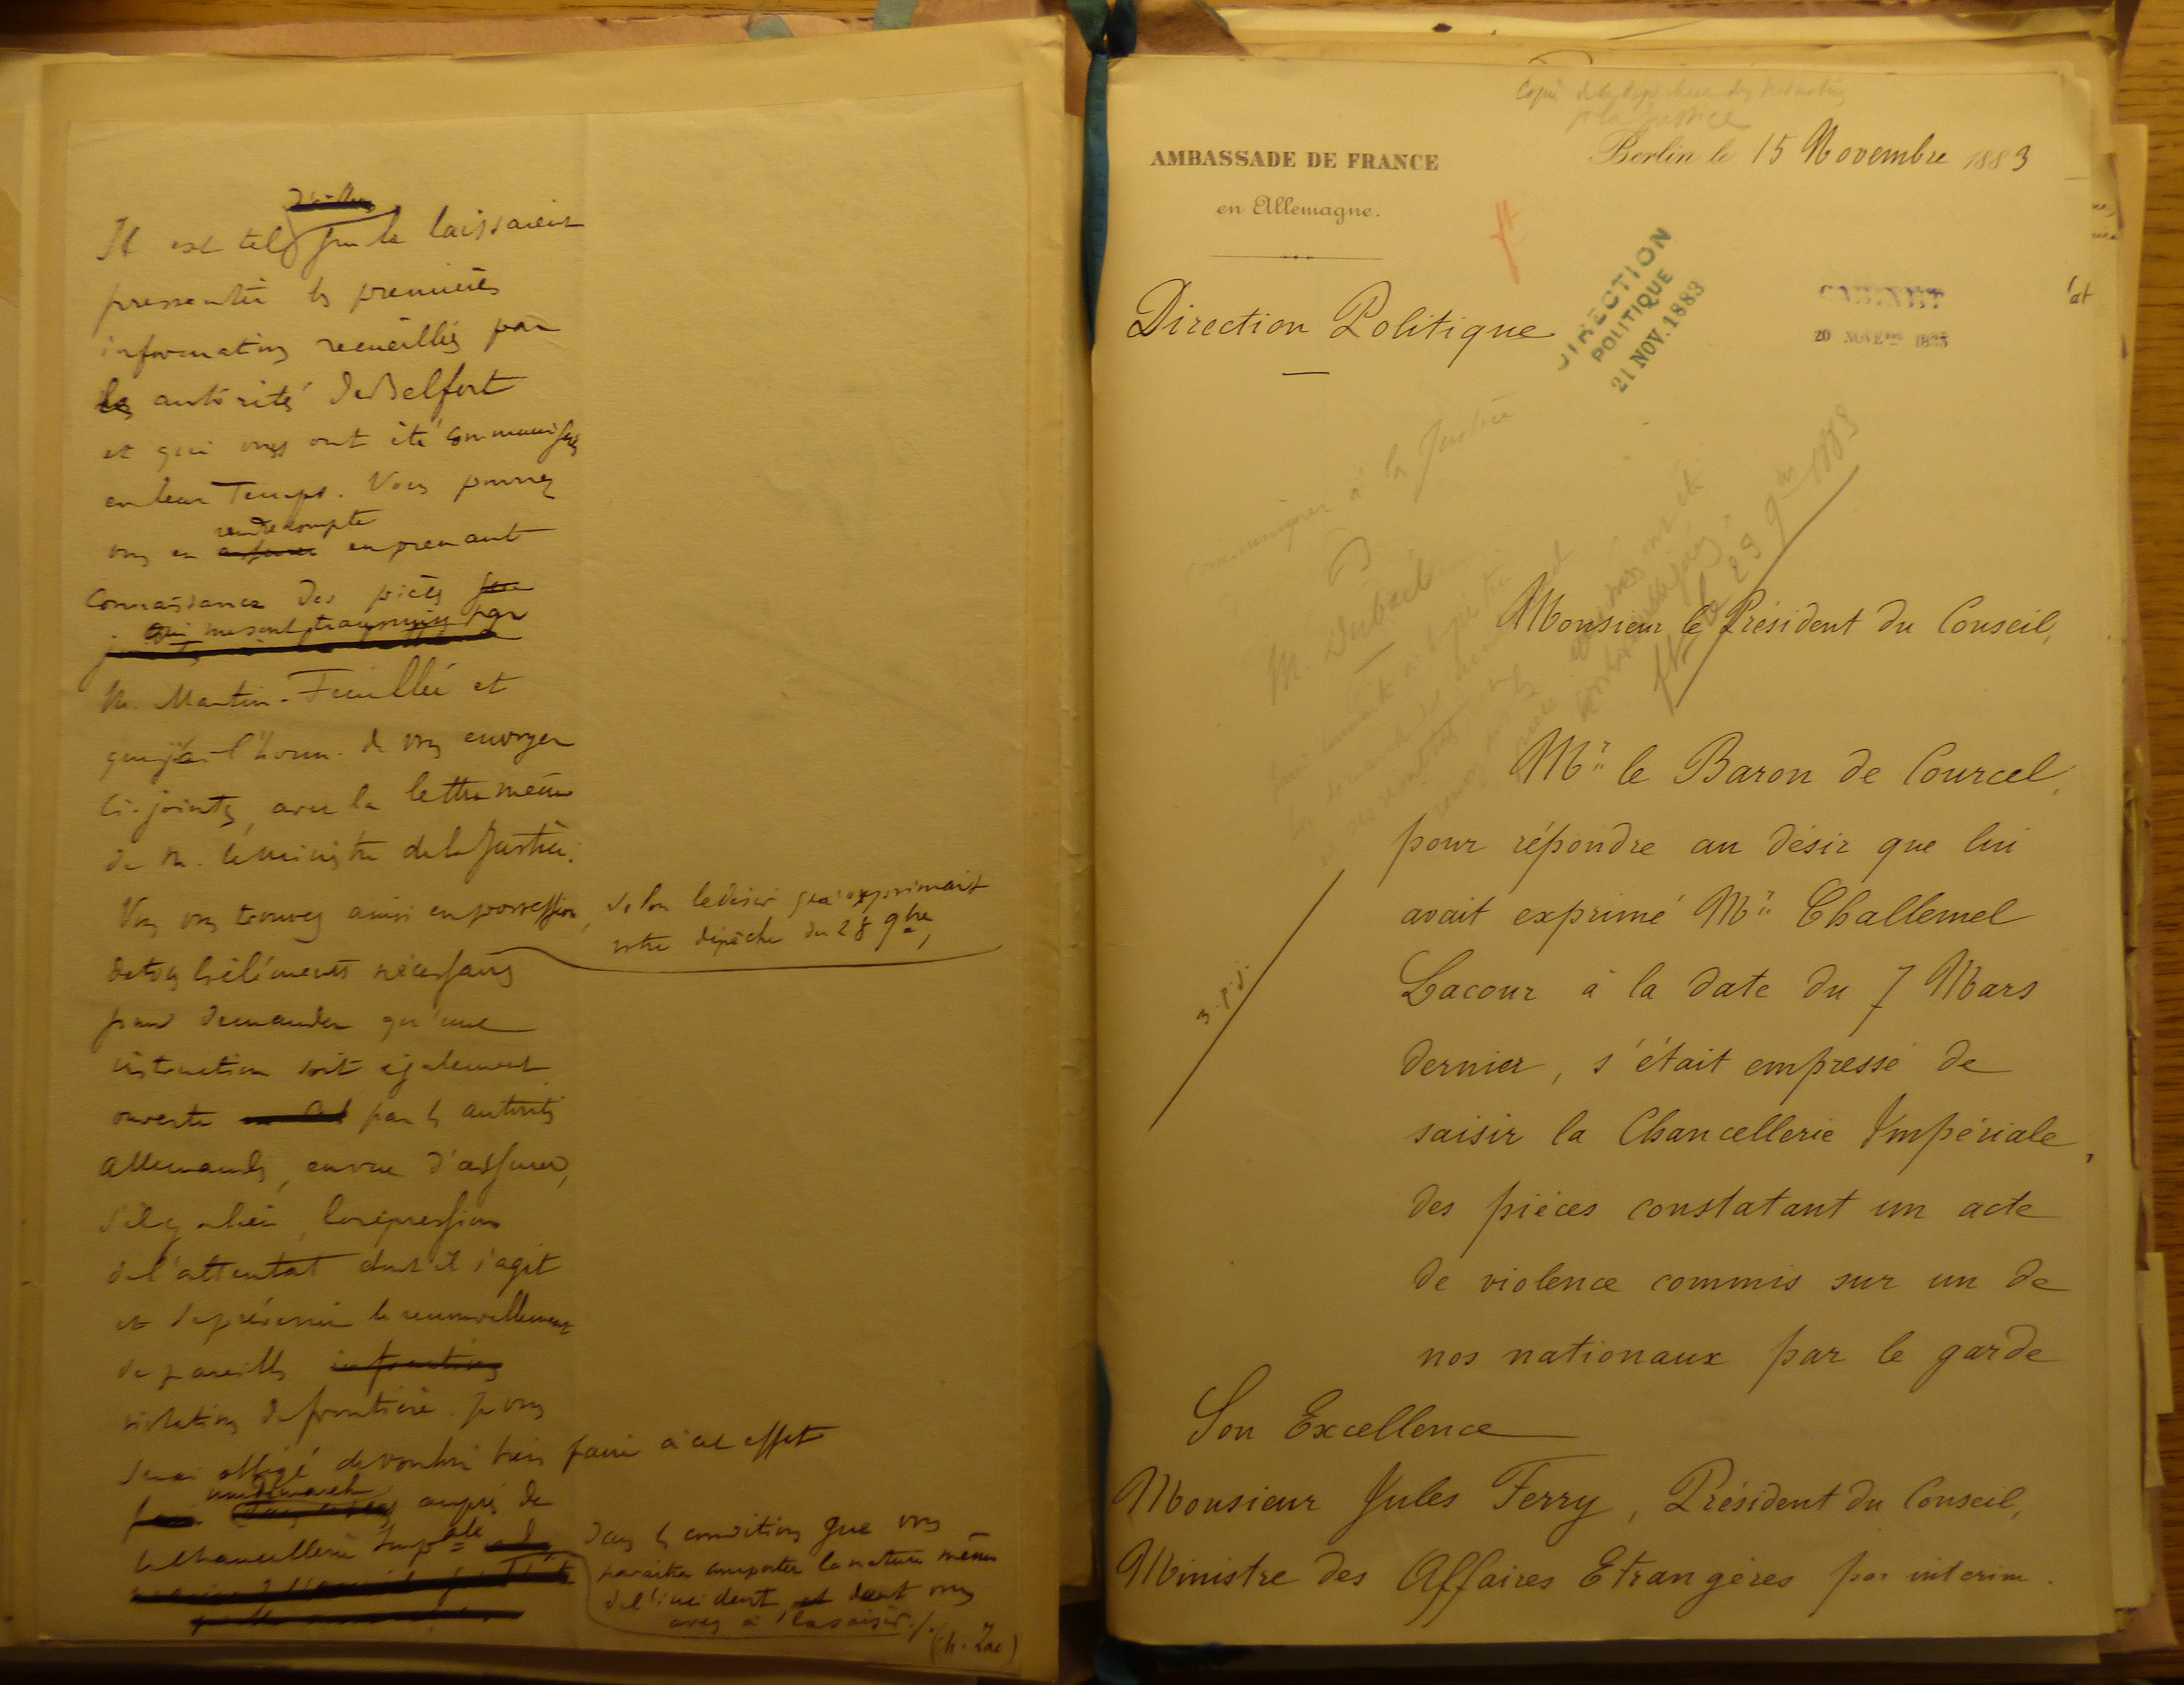 Il est tel que le laissaient
pressentir les premières
informations recueillies par
les autorités de Belfort
et qui vous ont été communiquées
en leur temps. Vous pourrez
rendre compte
vous en assurer en prenant
connaissance des pièces que
qui me sont transmises par
M. Martin-Feuillée et
que j'ai l'honn. de vous envoyer
ci-jointes, avec la lettre même
de M. le ministre de la Justice.
Vous vous trouvez ainsi en possession, selon le désir qu'exprimait
votre dépêche du 28 9bre,
de tous les éléments nécessaires
pour demander qu'une
instruction soit également
ouverte par les autorités
allemandes, en vue d'assurer,
s'il y a lieu, la répression
de l'attentat dont il s'agit
et de prévenir le renouvellement
de pareilles infractions
violations de frontière. Je vous
serai obligé de vouloir bien faire à cet effet
une démarche
auprès de
la Chancellerie Impale
dans les conditions que vous
paraîtra comporter la nature même
de l'incident et dont vous
avez à la saisir ./.
AMBASSADE DE FRANCE
en Allemagne.
Copie
Berlin le 15 Novembre 1883
Direction Politique
DIRECTION
POLITIQUE
21 NOV. 1883
CABINET
20 NOVEBRE 1883
communiquer à la Justice
M. Dubail
le 29 9bre 1883
Monsieur le Président du Conseil,
Mr le Baron de Courcel,
pour répondre au désir que lui
avait exprimé Mr Challemel
Lacour à la date du 7 Mars
dernier, s'était empressé de
saisir la Chancellerie Impériale,
des pièces constatant un acte
de violence commis sur un de
nos nationaux par le garde
3. p. j.
Son Excellence
Monsieur Jules Ferry, Président du Conseil,
Ministre des Affaires Etrangères par interim.